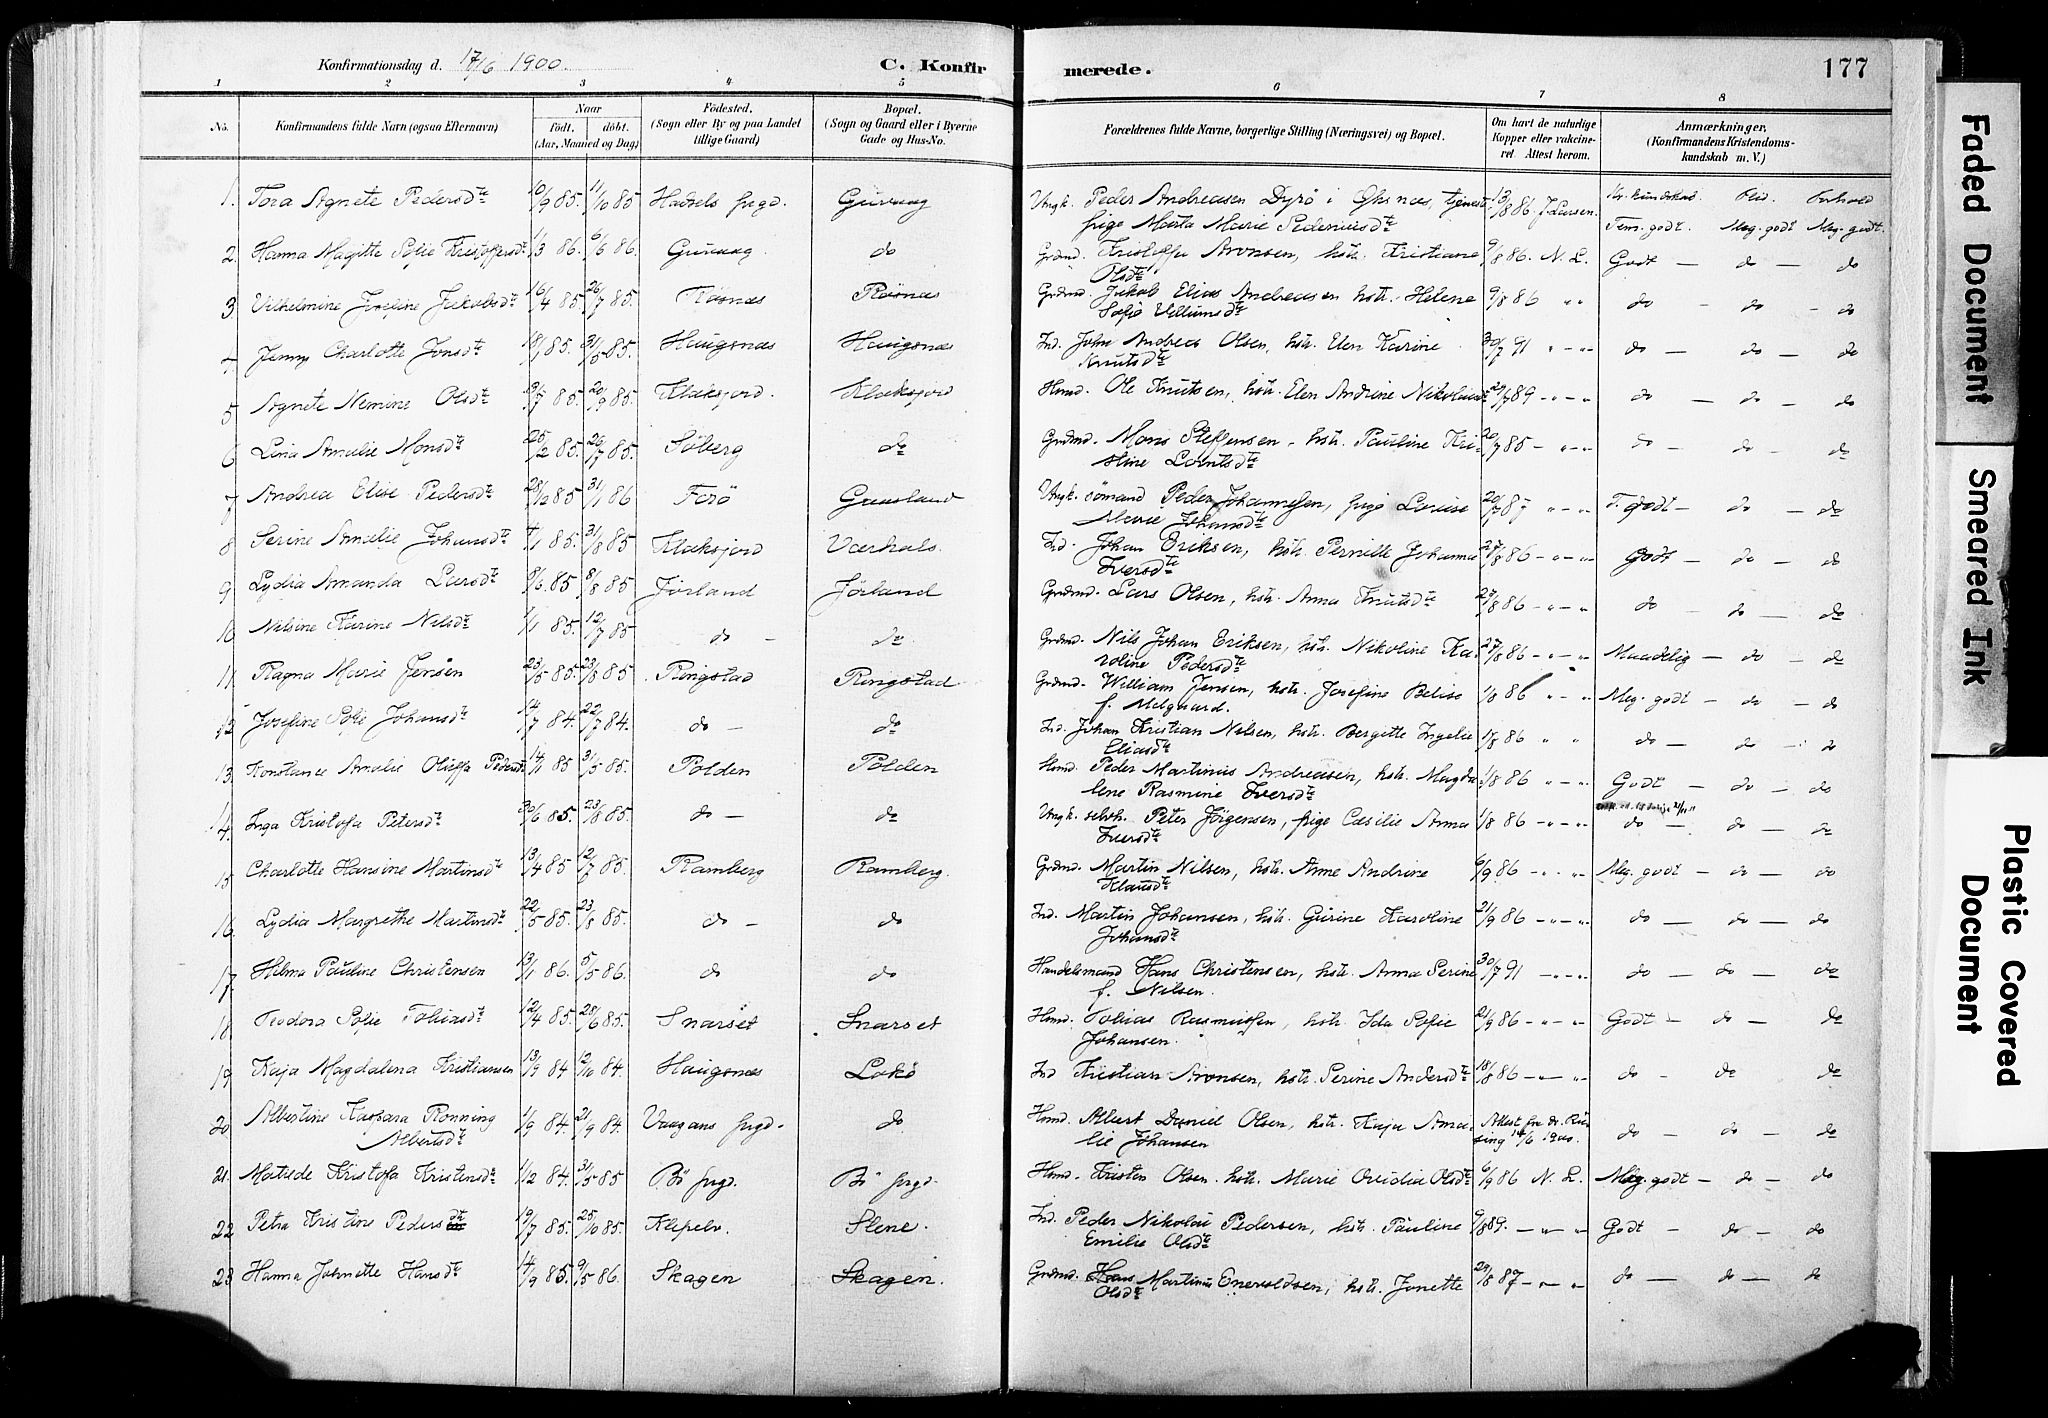 Konfirmationsdag d. 17/6 1900.
C. Konfir merede.
177
1 2 3 4 5 6 7 8
No. Konfirmandens fulde Navn (ogsaa Efternavn)
Naar født. døbt. (Aar, Maaned og Dag)
Fødested. (Sogn eller By og paa Landet tillige Gaard)
Bopæl. (Sogn og Gaard eller i Byerne Gade og Hus-No.
Forældrenes fulde Navne, borgerlige Stilling (Næringsvei) og Bopæl.
Om havt de naturlige Kopper eller vakcineret Attest herom.
Anmærkninger. (Konfirmandens Kristendomskundskab m. V.)
Kr. kundskab Flid. Forhold
1. Tora Agnete Pedersdtr 10/9 85. 11/10 85 Hadsels prgd. Guvaag Ungk. Peder Andreasen Dyrø i Øksnes, tjenest-
pige Marta Marie Pedersdtr 13/8 86. J. Larsen. Tem. godt. Meg. godt Meg. godt.
2. Hanna Magitte Sofie Kristoffersdtr 1/3 86. 6/6 86. Guvaag do Grdmd. Kristoffer Aronsen, hstr. Kristiane
Olsdtr 9/8 86. N. L. Godt — do — do
3 Vilhelmine Josefine Jakobsdtr 16/4 85. 26/7 85. Røsnes Røsnes Grdmd. Jakob Elias Andreasen hstr. Helene
Sofie Villumsdtr 9/8 86 " " do - do - do
4 Jenny Charlotte Jonsdtr 18/1 85. 31/5 85. Haugsnes Haugsnes Ind. John Andreas Olsen, hstr. Elen Karine
Knutsdtr 30/7 91 " - " do - do - do
5 Agnete Nemine Olsdtr 85. 20/9 85. Klaksjord. Klaksjord Hmd. Ole Knutsen, hstr. Elen Andrine Nikolaisdtr 29/7 89 - " - " do — do — do
6 Lina Amalie Monsdtr 25/2 85. 26/7 85. Søberg do Grdmd. Mons Steffensen - hstr. Pauline Kri-
stine Lorntsdtr 20/7 85 - " - " do — do - do
7 Andrea Elise Pedersdtr 28/10 85 31/1 86 Forø Guvsland Ungk. sømand Peder Johannessen, pige Lovise
Marie Johansdtr 20/7 87 " - " T. godt - do - do
8 Serine Amalie Johansdtr 4/1 85. 31/8 85 Klaksjord Værhals. Ind. Johan Eriksen, hstr. Pernille Johanna
Iversdtr 27/8 86 - " - " godt — do — do
9 Lydia Amanda Larsdtr 8/6 85 8/8 85 Jørland Jørland Grdmd. Lars Olsen, hstr. Anna Knutsdtr 27/8 86 - " - " do — do — do
10 Nilsine Karine Nilsdtr 1/1 85. 12/7 85 do - do Grdmd. Nils Johan Eriksen, hstr. Nikoline Ka-
roline Pedersdtr 27/8 86 - " - " Maadelig - do - do
11. Ragna Marie Jensen 23/5 85. 23/8 85 Ringstad Ringstad Grdmd. William Jensen, hstr. Josefine Belise
f. Melgaard. 1/8 86 " - " Meg. godt - do - do
12 Josefine Sofie Johansdtr 14/7 84. 22/7 84. do - do Ind. Johan Kristian Nilsen, hstr. Bergitte Ingelie
Eliasdtr 1/8 86 " " do - do - do
13 Konstance Amalie Oleffa Pedersdtr 14/1 85 31/5 85. Polden Polden Hmd. Peder Martinus Andreasen, hstr. Magda-
lene Rasmine Iversdtr 1/8 86 " - " Godt — do — do
14. Inga Kristofa Petersdtr 30/6 85. 23/8 85. do - do Ungk. selvh. Peter Jørgensen, pige Cæsilie Anna
Iversdtr 1/8 86 - " - " do — do — do
15 Charlotte Hansine Martinsdtr 13/4 85 12/7 85. Ramberg Ramberg. Grdmd. Martin Nilsen, hstr. Anne Andrine
Klausdtr 6/9 86 - " - " Meg. godt — do — do
16. Lydia Margrethe Martinsdtr 22/5 85. 23/8 85. do - do Ind. Martin Johansen, hstr. Gurine Karoline
Johansdtr 21/9 86 - " - " do — do — do
17. Hilma Pauline Christensen 13/1 86. 5/5 86. do do Handelsmand Hans Christensen, hstr. Anna Serine
f. Nilsen. 30/7 91 - " - " do — do — do
18. Teodora Sofie Tobiasdtr 12/4 85. 28/6 85. Snarset Snarset Hmd. Tobias Rasmussen, hstr. Ida Sofie
Johansen. 21/9 86 - " - " Godt - do — do
19 Kaja Magdalena Kristiansen 13/9 84 12/10 84. Haugsnes Lokø Ind Kristian Aronsen, hstr. Serine Andersdtr 18/8 86 - " - " do - do - do
20 Albertine Kaspara Rønning
Albertsdtr 1/9 84. 21/9 84. Vaagans prgd. do Hmd. Albert Daniel Olsen, hstr. Kaja Ama-
lie Johansen Attest fra dr. 14/6 1900. do - do - do
21. Matilde Kristofa Kristensdtr 1/2 84. 31/5 85 Bø prgd. Bø prgd. Hmd. Kristen Olsen. hstr. Marie Ovidia Olsdtr 6/9 86 N. L. Meg. godt - do - do
22 Petra Kristine Pedersdtr 19/7 85. 25/10 85. Klepelv. Slene. Ind. Peder Nikolai Pedersen, hstr. Pauline
Emilie Olsdtr 9/8 89. - " - " Godt - do - do
23 Hanna Johnette Hansdtr 14/9 85. 9/5 86. Skagen Skagen. Grdmd. Hans Martinus Enevoldsen, hstr. Jonette
Olsdtr 29/8 87 - " - " do — do — do
Faded Document
Smeared Ink
Plastic Covered Document